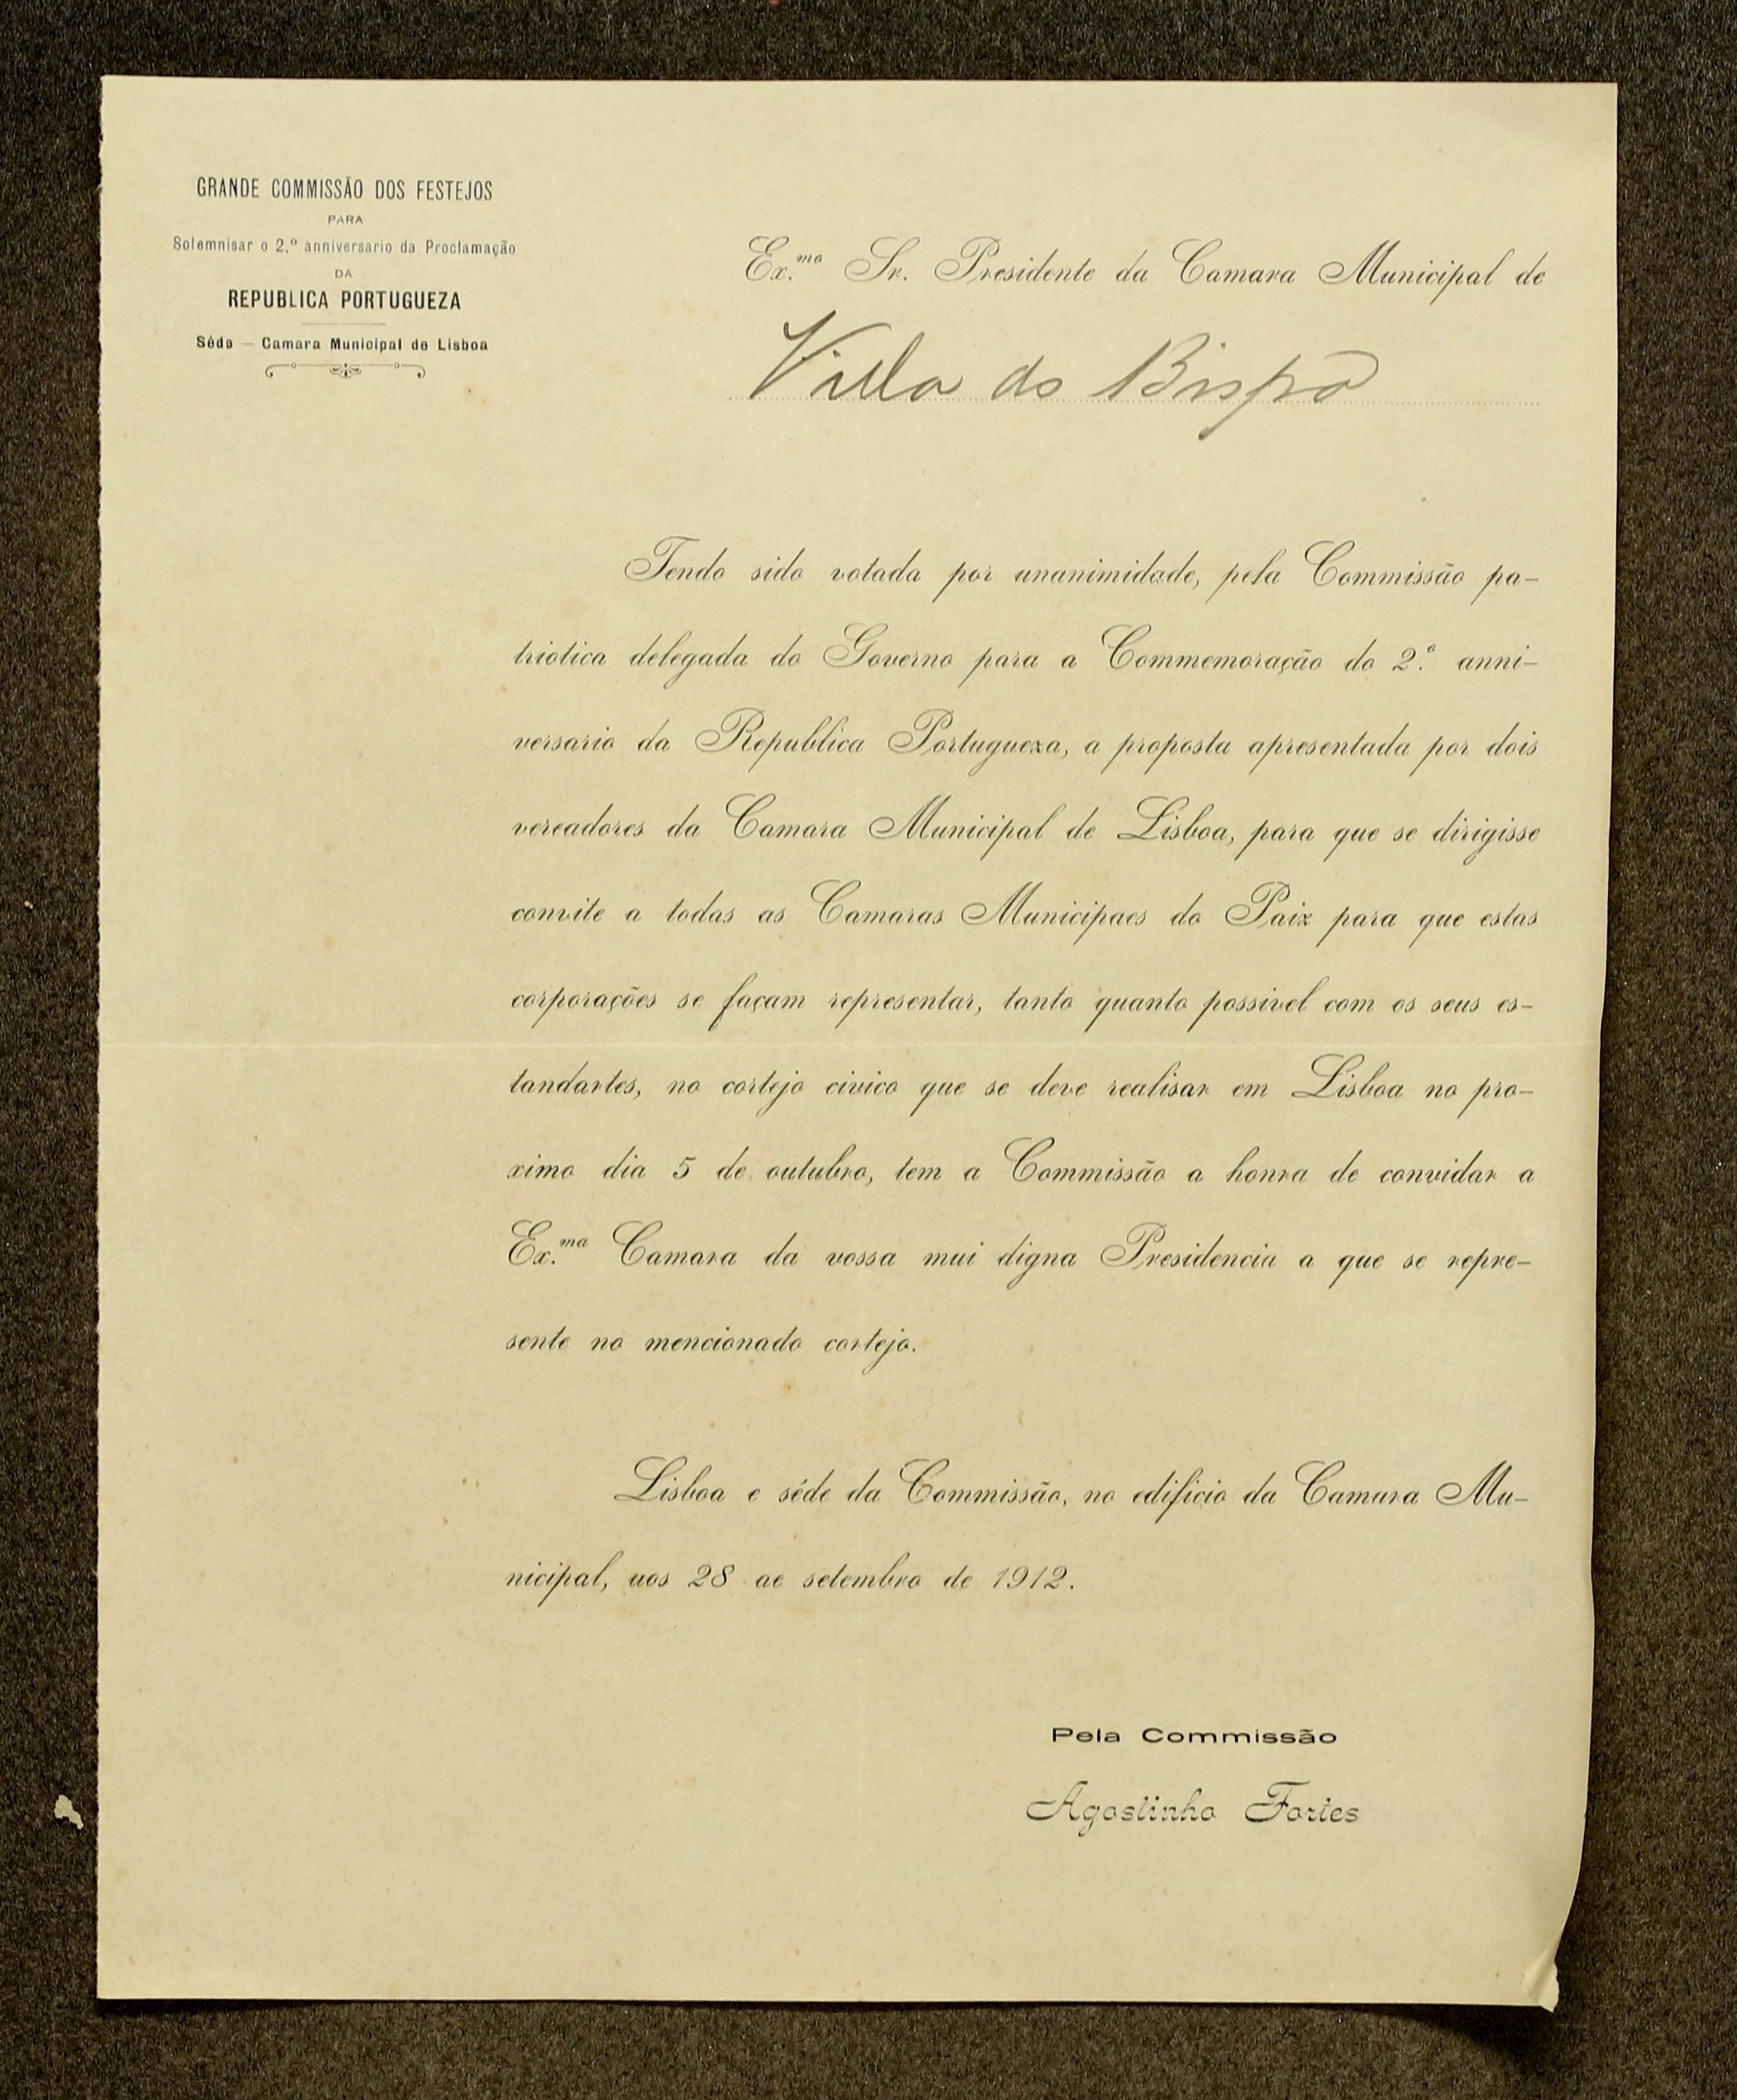 GRANDE COMMISSÃO DOS FESTEJOS
PARA
Solemnisar o 2.º anniversario da Proclamação
DA
REPUBLICA PORTUGUEZA
Séde — Camara Municipal de Lisboa
Ex.mo Sr. Presidente da Camara Municipal de
Villa do Bispo
Tendo sido votada por unanimidade, pela Commissão pa-
triotica delegada do Governo para a Commemoração do 2.º anni-
versario da Republica Portugueza, a proposta apresentada por dois
vereadores da Camara Municipal de Lisboa, para que se dirigisse
convite a todas as Camaras Municipaes do Paiz para que estas
corporações se façam representar, tanto quanto possivel com os seus es-
tandartes, no cortejo civico que se deve realisar em Lisboa no pro-
ximo dia 5 de outubro, tem a Commissão a honra de convidar a
Ex.ma Camara da vossa mui digna Presidencia a que se repre-
sente no mencionado cortejo.
Lisboa e séde da Commissão, no edificio da Camara Mu-
nicipal, aos 28 de setembro de 1912.
Pela Commissão
Agostinho Fortes